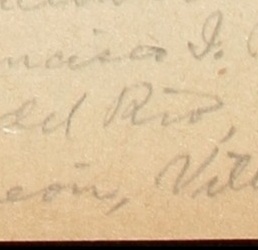 ncisco I.
del Rio,
eón, Vill